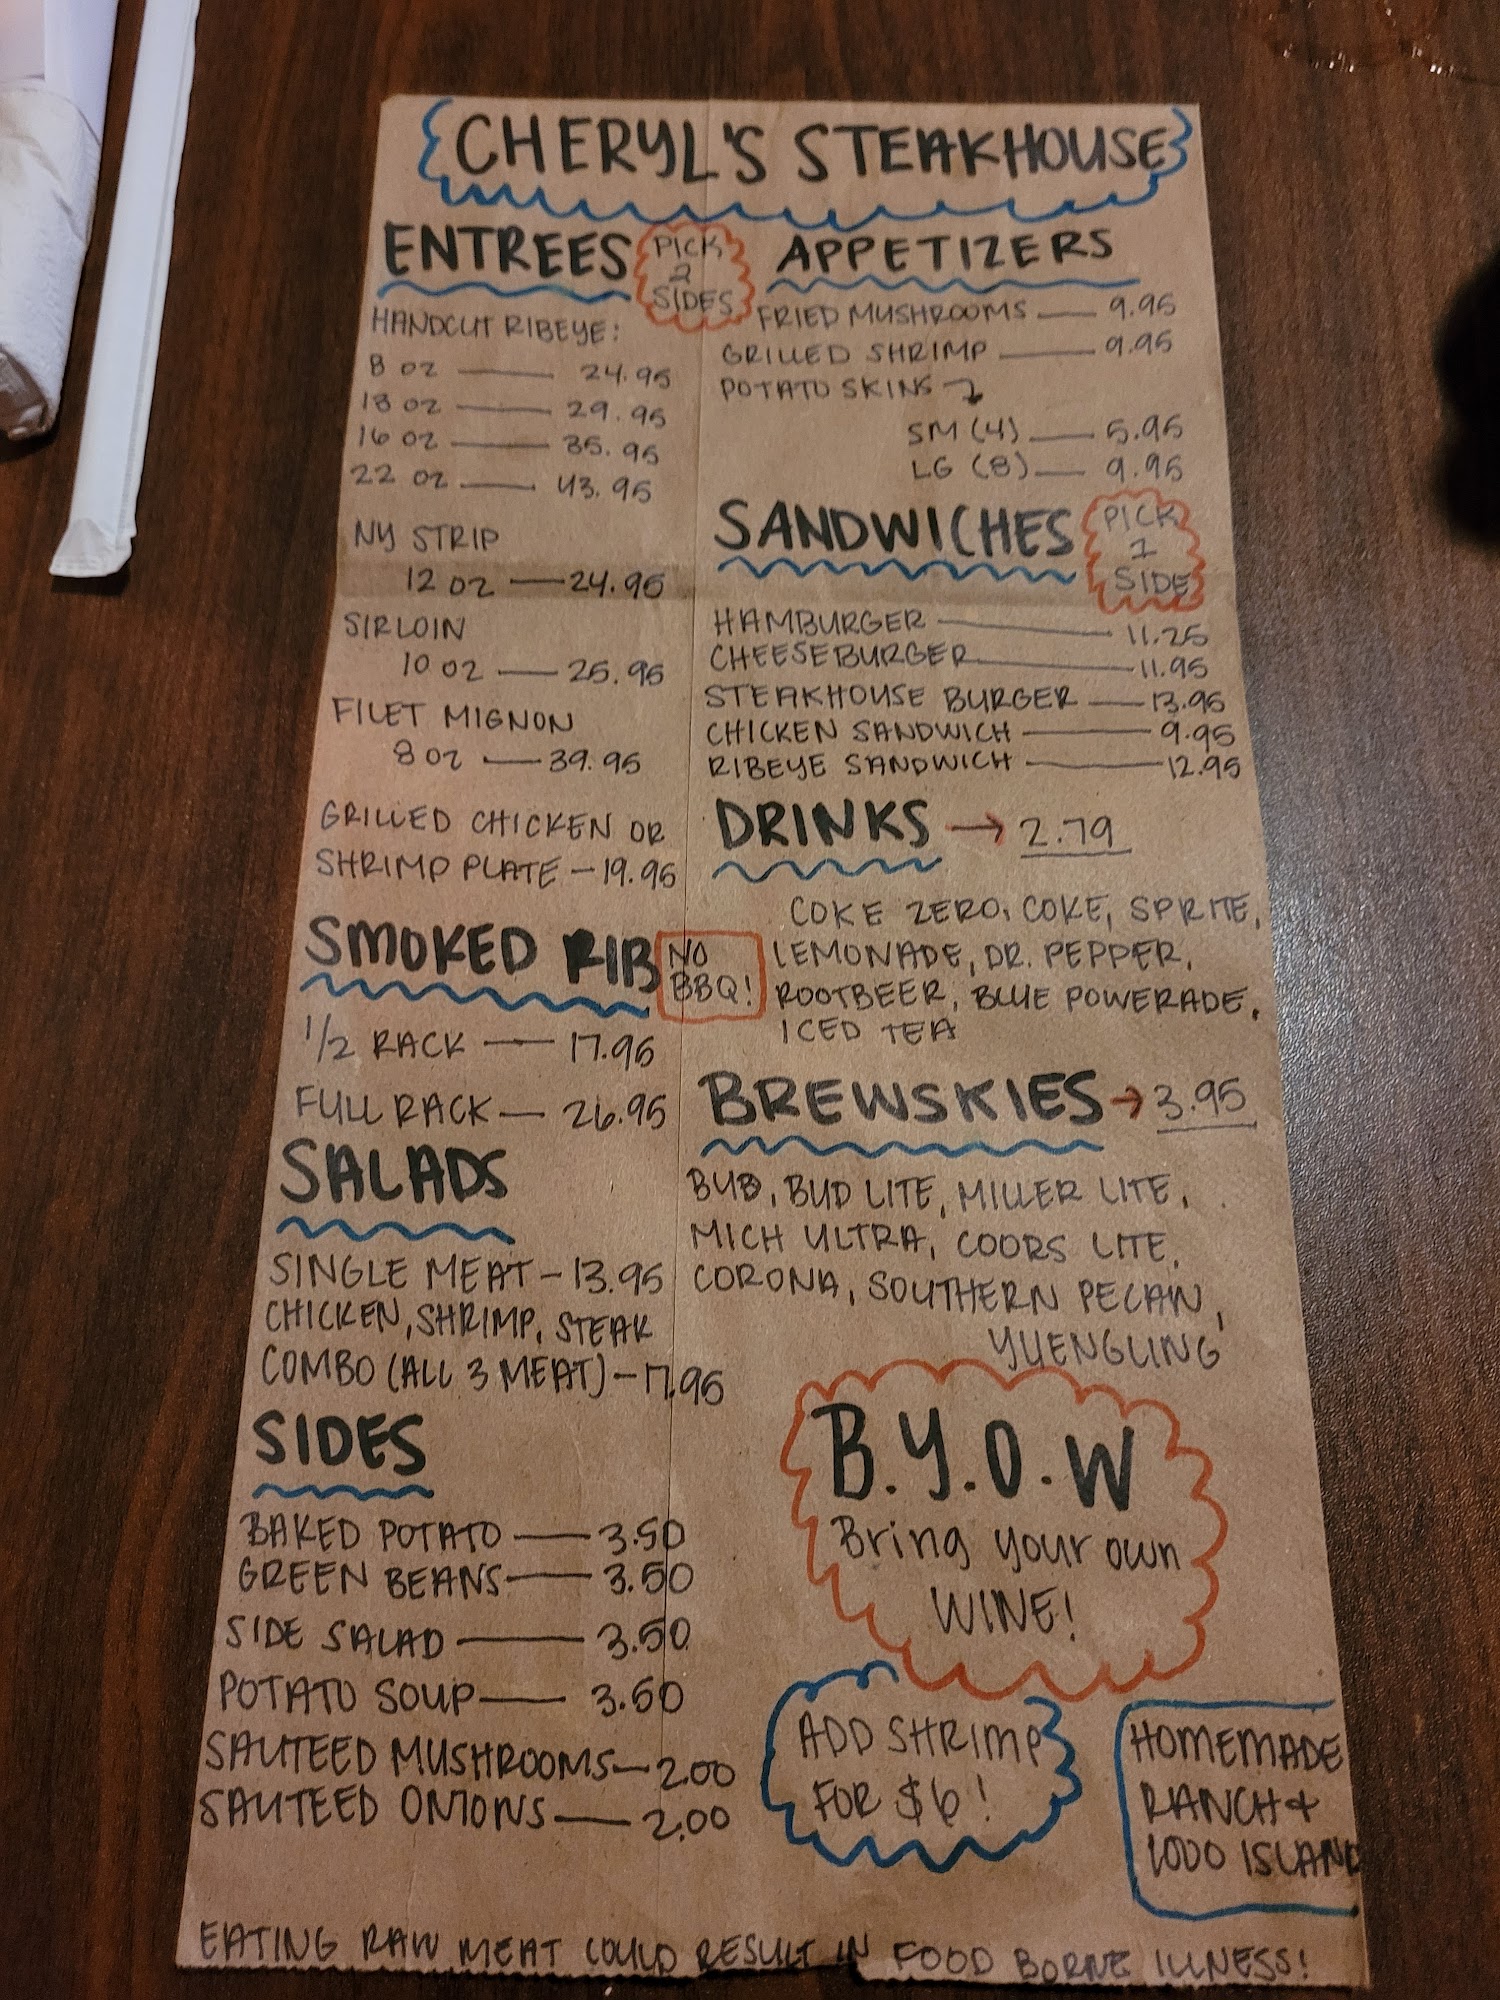 CHERYL'S STEAKHOUSE
ENTREES
PICK
2
SIDES
HANDCUT RIBEYE:
8 OZ — 24.95
13 OZ — 29.95
16 OZ — 35.95
22 OZ — 43.95
NY STRIP
12 OZ — 24.95
SIRLOIN
10 OZ — 25.95
FILET MIGNON
8 OZ — 39.95
GRILLED CHICKEN OR
SHRIMP PLATE — 19.95
SMOKED RIB
NO
BBQ!
1/2 RACK — 17.95
FULL RACK — 26.95
SALADS
SINGLE MEAT — 13.95
CHICKEN, SHRIMP, STEAK
COMBO (ALL 3 MEAT) — 17.95
SIDES
BAKED POTATO — 3.50
GREEN BEANS — 3.50
SIDE SALAD — 3.50
POTATO SOUP — 3.50
SAUTEED MUSHROOMS — 2.00
SAUTEED ONIONS — 2.00
APPETIZERS
FRIED MUSHROOMS — 9.95
GRILLED SHRIMP — 9.95
POTATO SKINS
SM (4) — 5.95
LG (8) — 9.95
SANDWICHES
PICK
1
SIDE
HAMBURGER — 11.25
CHEESEBURGER — 11.95
STEAKHOUSE BURGER — 13.95
CHICKEN SANDWICH — 9.95
RIBEYE SANDWICH — 12.95
DRINKS → 2.79
COKE ZERO, COKE, SPRITE,
LEMONADE, DR. PEPPER,
ROOTBEER, BLUE POWERADE,
ICED TEA
BREWSKIES → 3.95
BUB, BUD LITE, MILLER LITE,
MICH ULTRA, COORS LITE,
CORONA, SOUTHERN PECAN,
YUENGLING
B.Y.O.W
Bring your own
WINE!
ADD SHRIMP
FOR $6!
HOMEMADE
RANCH +
1000 ISLAND
EATING RAW MEAT COULD RESULT IN FOOD BORNE ILLNESS!